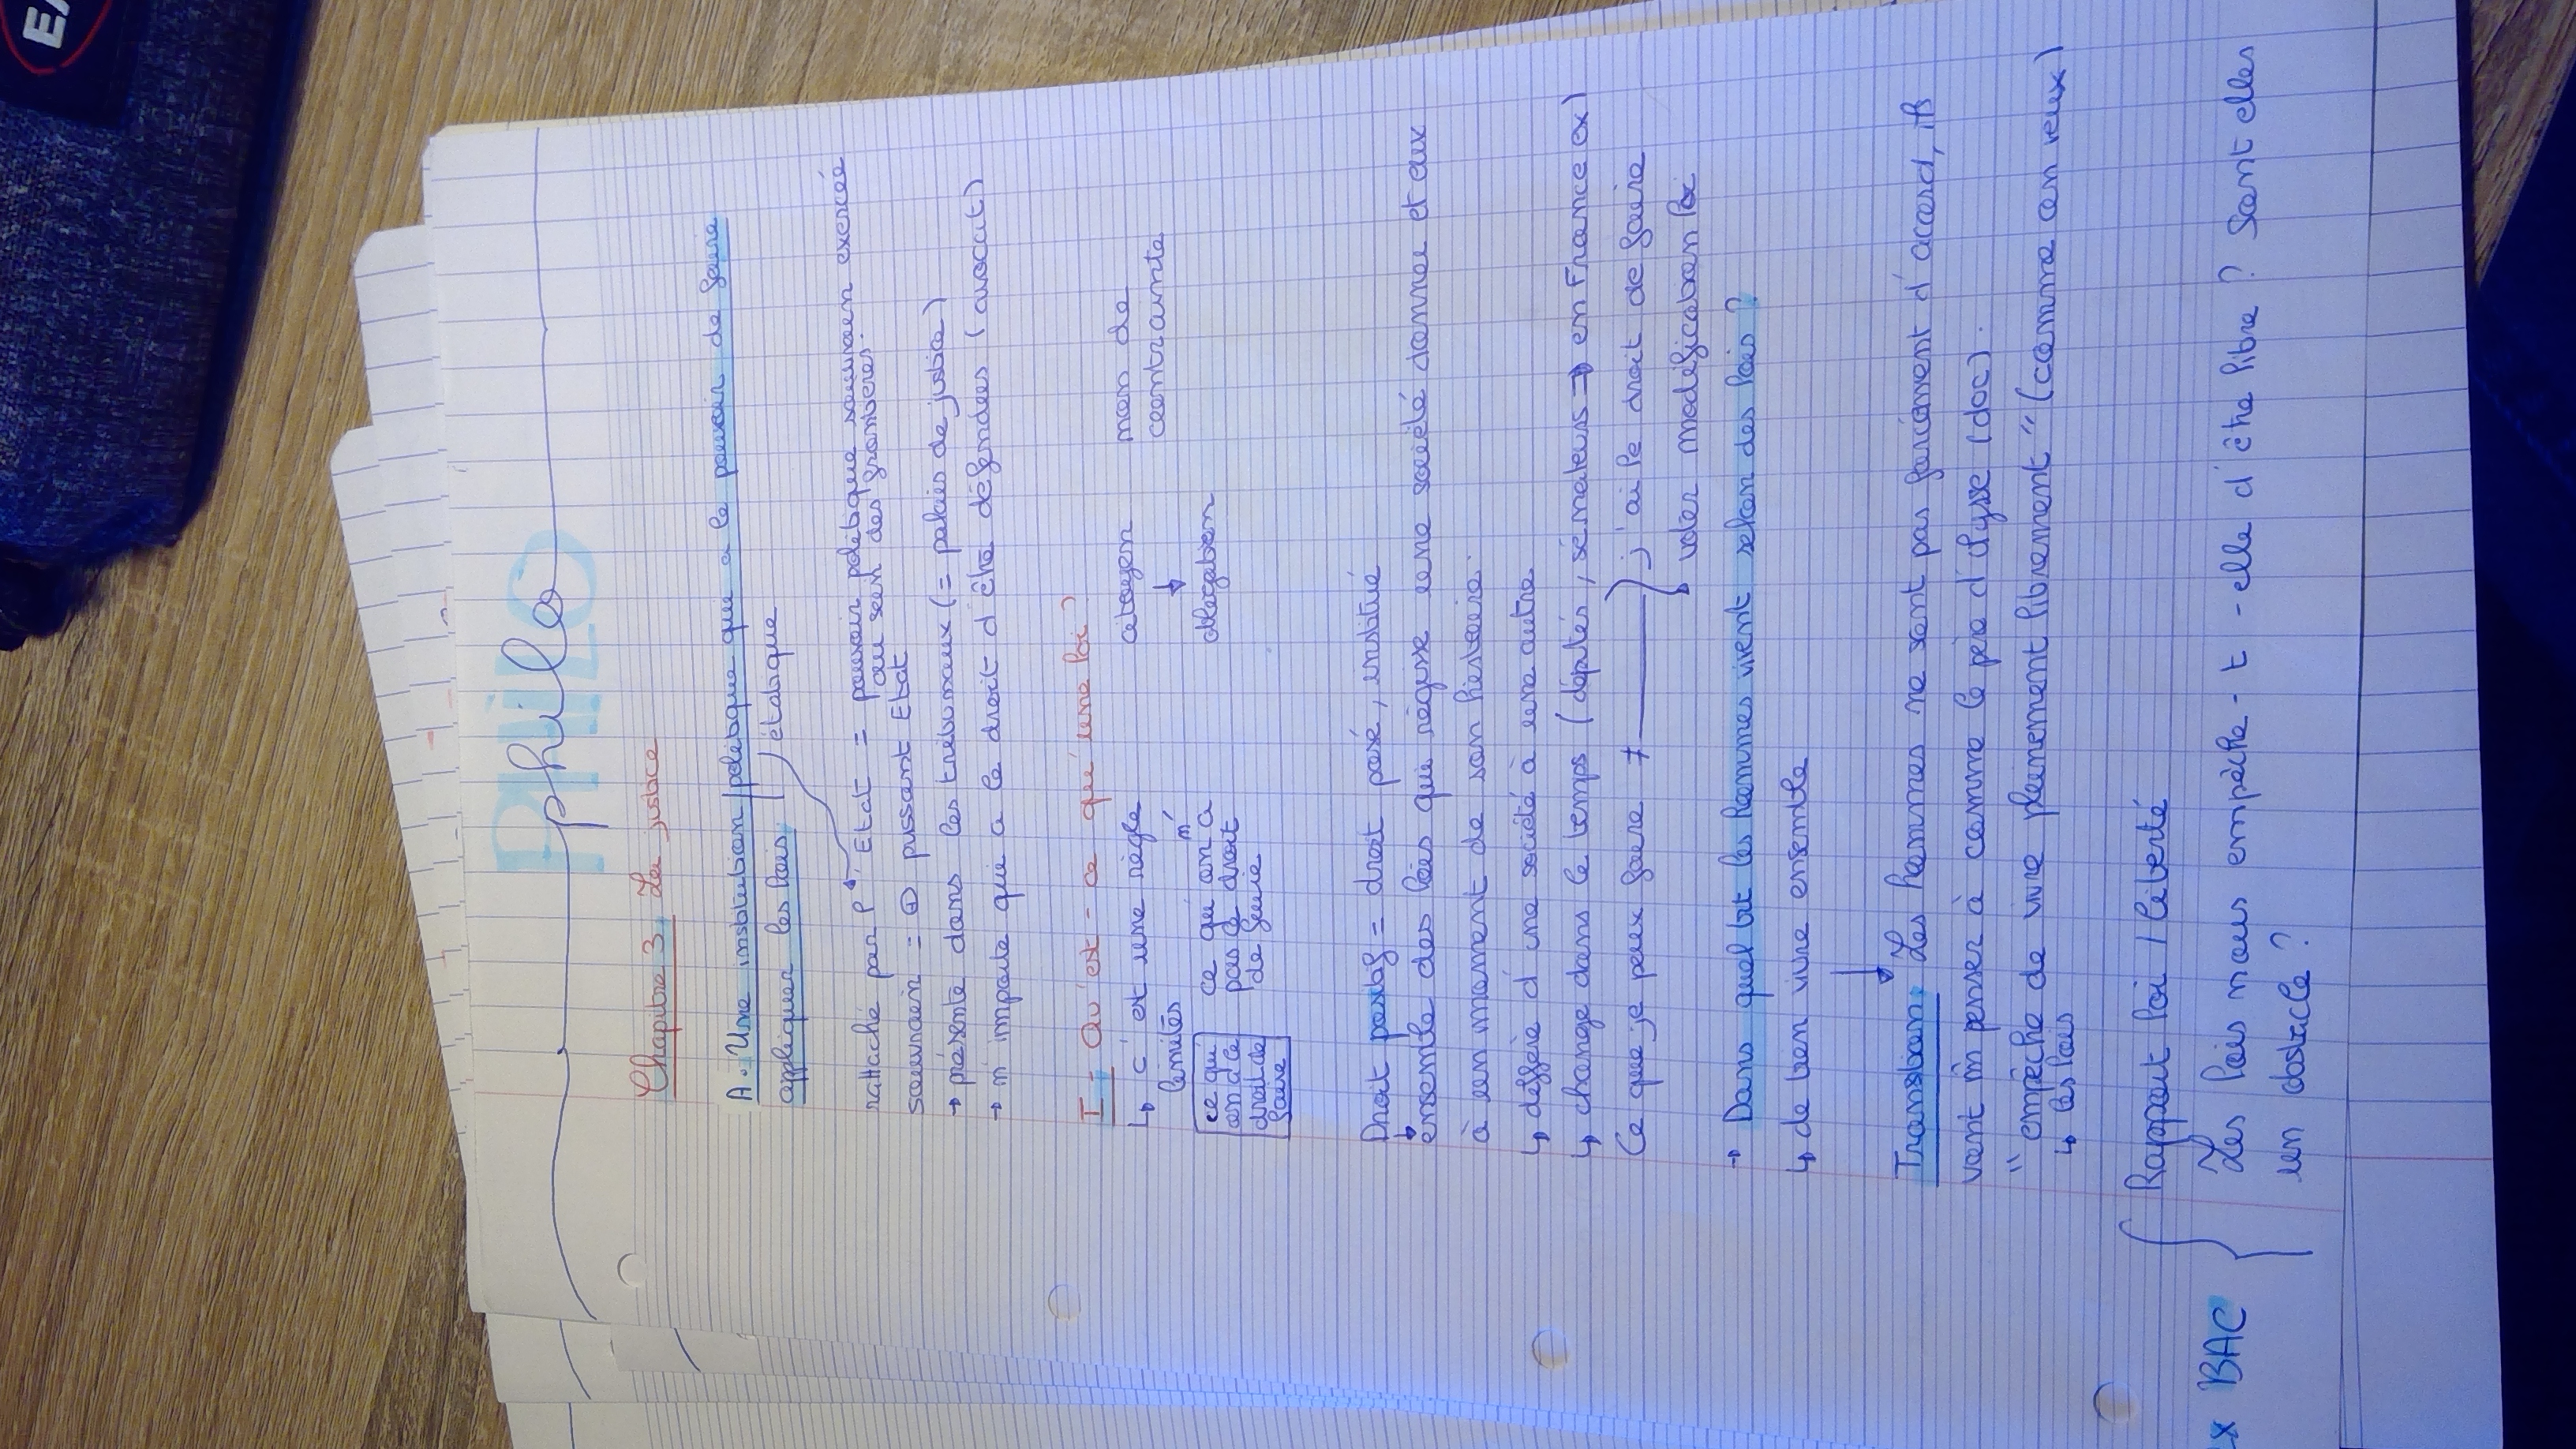 EA
PHILO
philo
Chapitre 3. La justice
A. Une institution politique qui a le pouvoir de faire
appliquer les lois. étatique
rattaché par l'Etat = pouvoir politique souverain exercée
au sein des frontières.
souverain = + puissant Etat
→ présente dans les tribunaux (= palais de justice)
→ n'importe qui a le droit d'être défendu (avocat)
I - Qu'est-ce qu'une loi ?
↳ c'est une règle citoyen non de
limités contrainte
ce qui ce qu'on a ↓
on a le pas le droit obligation
droit de de faire
faire
Droit positif = droit posé, institué
↓
ensemble des lois qui régisse une société donnée et aux
à un moment de son histoire.
↳ diffère d'une société à une autre
↳ change dans le temps (députés, sénateurs → en France ex)
Ce que je peux faire ≠ j'ai le droit de faire
↳ voter modification loi
→ Dans quel but les hommes vivent selon des lois ?
↳ de bien vivre ensemble
Transition : Les hommes ne sont pas forcément d'accord, ils
vont penser à comme le père d'Ulysse (doc).
" empêche de vivre pleinement librement " (comme on veux)
↳ les lois
Rapport loi / liberté
ex BAC Les lois nous empêche-t-elle d'être libre ? Sont elles
un obstacle ?